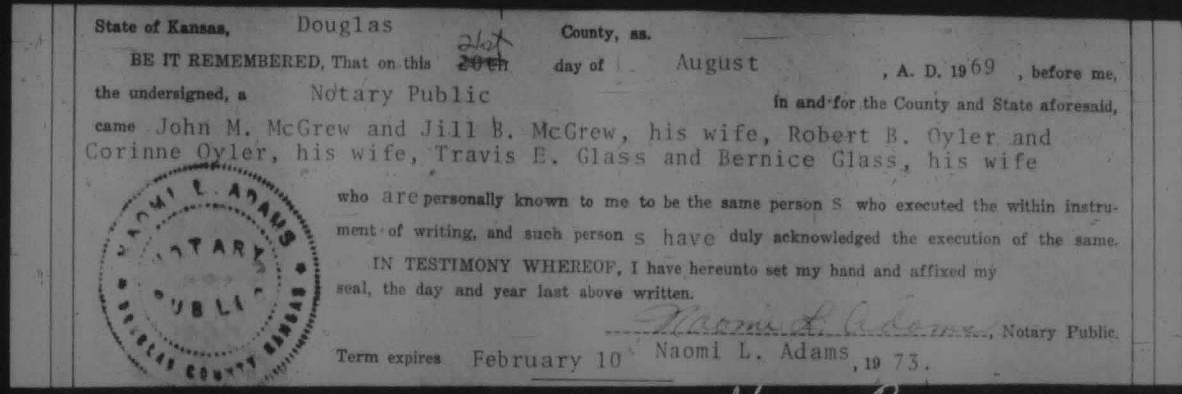 State of Kansas, Douglas County, ss.
21st
BE IT REMEMBERED, That on this 20th day of August , A. D. 1969 , before me,
the undersigned, a Notary Public in and for the County and State aforesaid,
came John M. McGrew and Jill B. McGrew, his wife, Robert B. Oyler and
Corinne Oyler, his wife, Travis E. Glass and Bernice Glass, his wife
who are personally known to me to be the same person s who executed the within instru-
ment of writing, and such person s have duly acknowledged the execution of the same.
IN TESTIMONY WHEREOF, I have hereunto set my hand and affixed my
seal, the day and year last above written.
Naomi L. Adams, Notary Public.
Term expires February 10 Naomi L. Adams , 19 73.
NAOMI L. ADAMS
NOTARY
PUBLIC
DOUGLAS COUNTY KANSAS